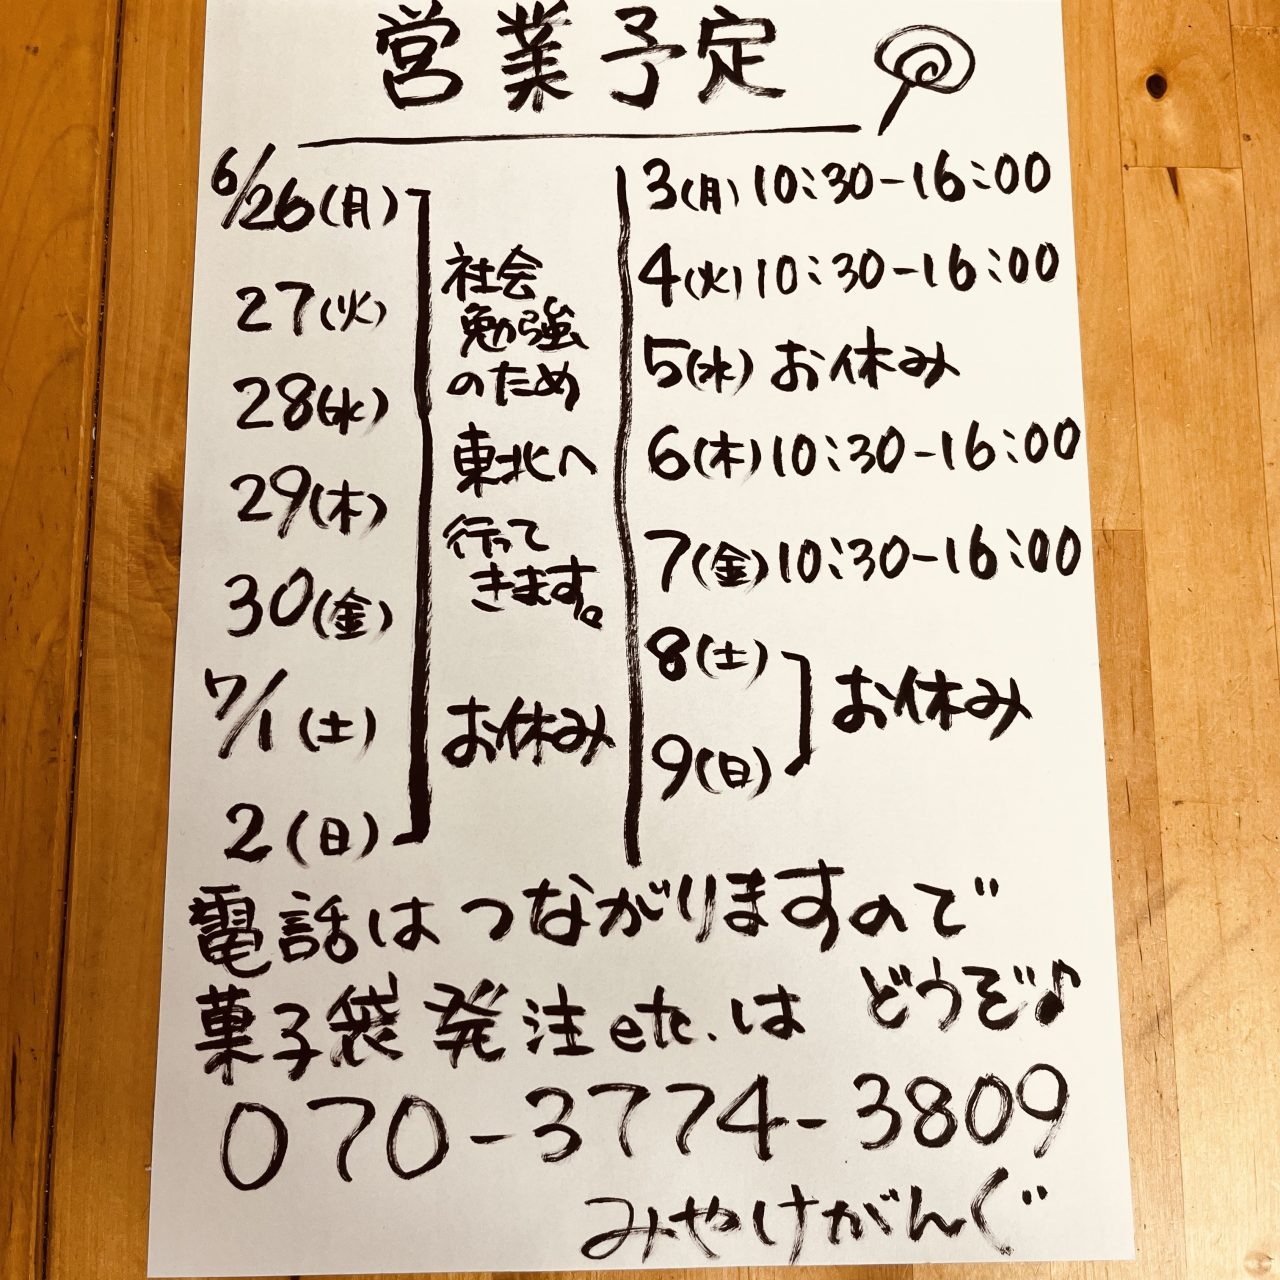 営業予定
6/26(月)
27(火)
28(水)
29(木)
30(金)
7/1(土)
2(日)
社会
勉強
のため
東北へ
行って
きます。
お休み
3(月)10:30-16:00
4(火)10:30-16:00
5(水)お休み
6(木)10:30-16:00
7(金)10:30-16:00
8(土)
9(日)
お休み
電話はつながりますので
菓子袋発注etc.はどうぞ♪
070-3774-3809
みやけがんぐ